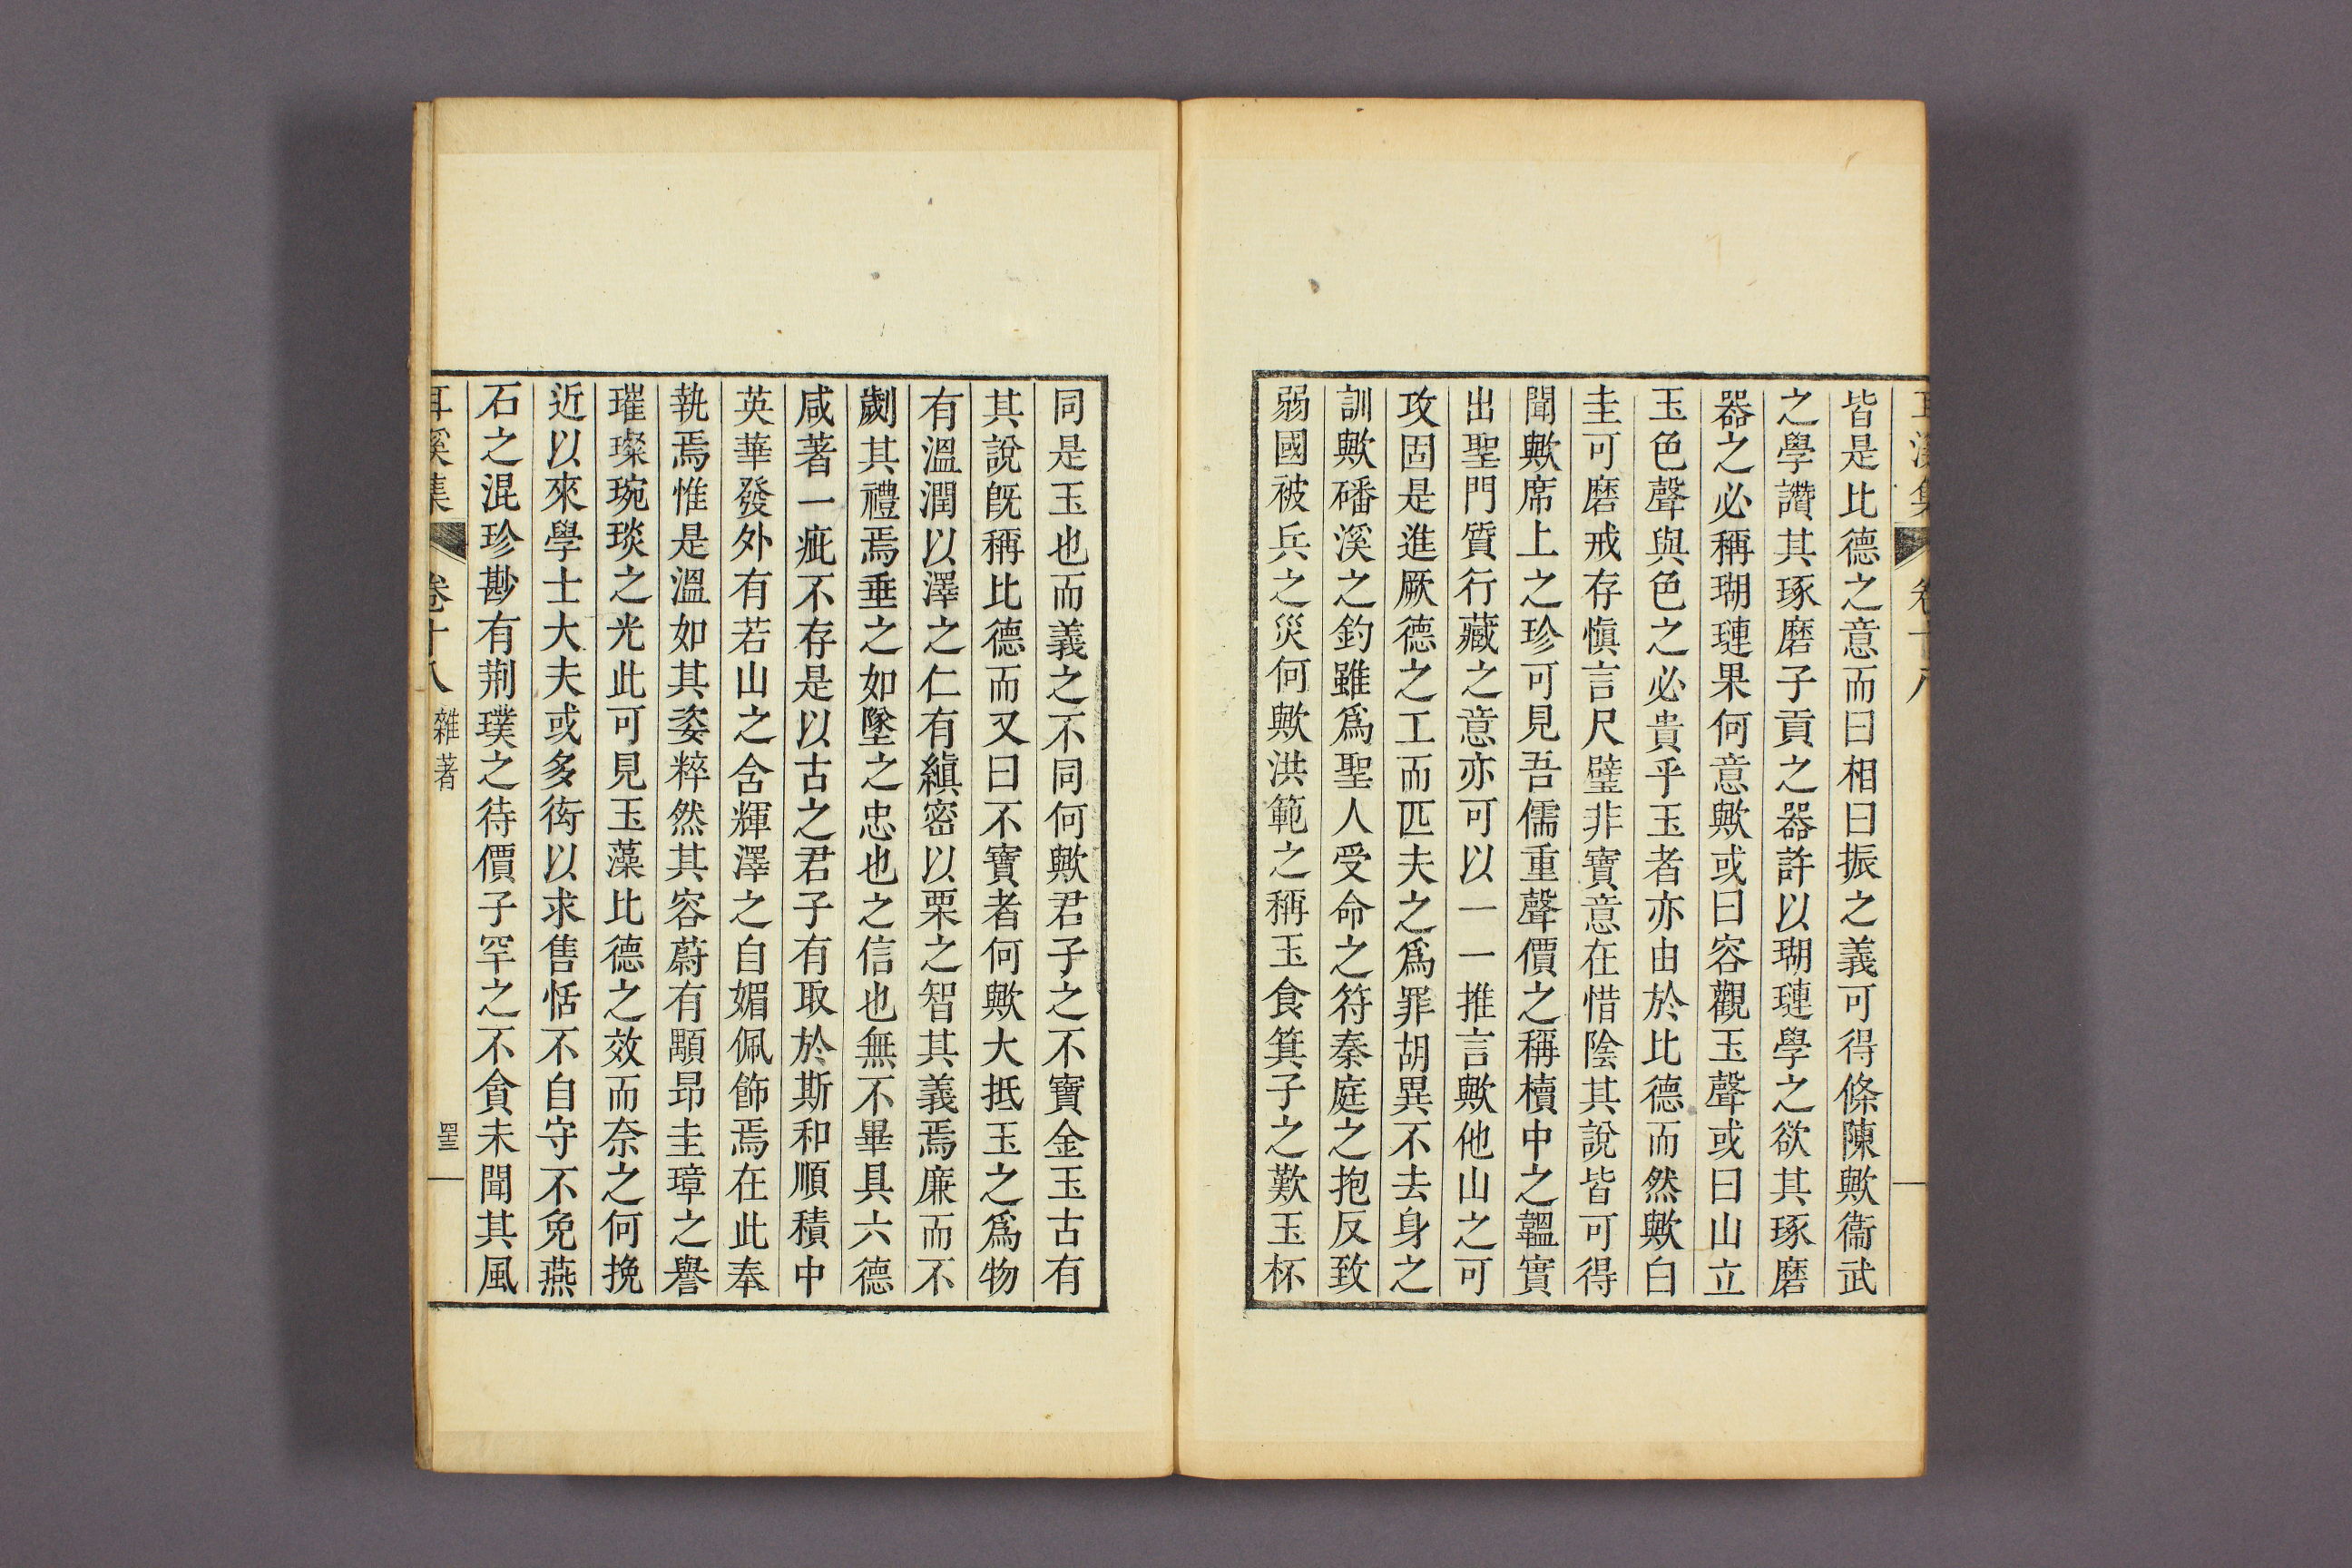 耳溪集 卷十八
皆是比德之意而曰相曰振之義可得條陳歟衞武
之學讚其琢磨子貢之器許以瑚璉學之欲其琢磨
器之必稱瑚璉果何意歟或曰容觀玉聲或曰山立
玉色聲與色之必貴乎玉者亦由於比德而然歟白
圭可磨戒存愼言尺璧非寶意在惜陰其說皆可得
聞歟席上之珍可見吾儒重聲價之稱櫝中之韞實
出聖門質行藏之意亦可以一一推言歟他山之可
攻固是進厥德之工而匹夫之爲罪胡異不去身之
訓歟磻溪之釣雖爲聖人受命之符秦庭之抱反致
弱國被兵之災何歟洪範之稱玉食箕子之歎玉杯
同是玉也而義之不同何歟君子之不寶金玉古有
其說旣稱比德而又曰不寶者何歟大抵玉之爲物
有溫潤以澤之仁有縝密以栗之智其義焉廉而不
劌其禮焉垂之如墜之忠也之信也無不畢具六德
咸著一疵不存是以古之君子有取於斯和順積中
英華發外有若山之含輝澤之自媚佩飾焉在此奉
執焉惟是溫如其姿粹然其容蔚有顒昂圭璋之譽
璀璨琬琰之光此可見玉藻比德之效而奈之何挽
近以來學士大夫或多衒以求售恬不自守不免燕
石之混珍尠有荆璞之待價子罕之不貪未聞其風
耳溪集 卷十八 雜著 罣